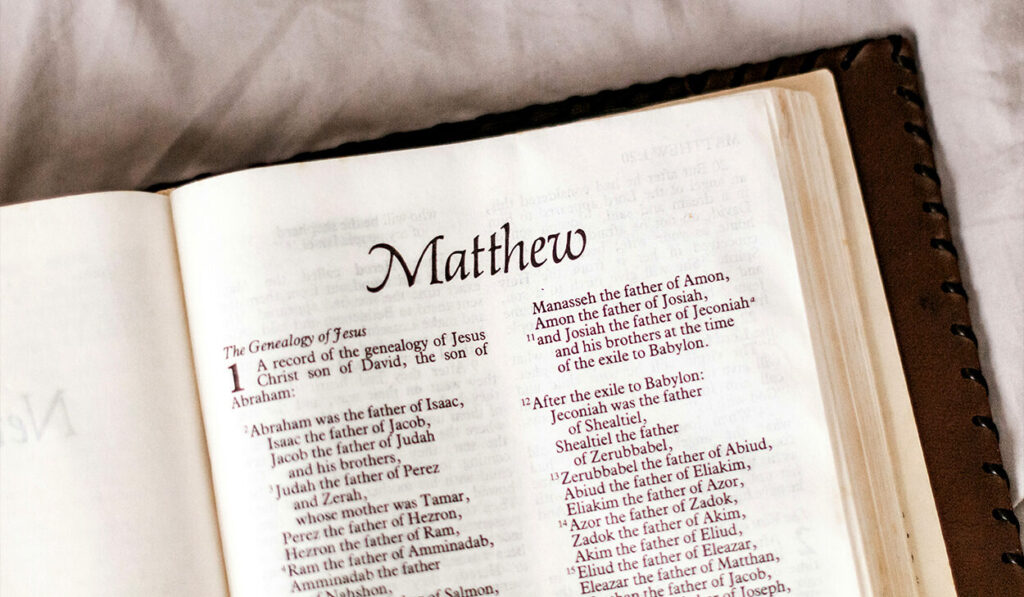 Matthew
The Genealogy of Jesus
1 A record of the genealogy of Jesus
Christ son of David, the son of
Abraham:
2 Abraham was the father of Isaac,
Isaac the father of Jacob,
Jacob the father of Judah
and his brothers,
3 Judah the father of Perez
and Zerah,
whose mother was Tamar,
Perez the father of Hezron,
Hezron the father of Ram,
4 Ram the father of Amminadab,
Amminadab the father
of Nahshon,
of Salmon,
Manasseh the father of Amon,
Amon the father of Josiah,
11 and Josiah the father of Jeconiah a
and his brothers at the time
of the exile to Babylon.
12 After the exile to Babylon:
Jeconiah was the father
of Shealtiel,
Shealtiel the father
of Zerubbabel,
13 Zerubbabel the father of Abiud,
Abiud the father of Eliakim,
Eliakim the father of Azor,
14 Azor the father of Zadok,
Zadok the father of Akim,
Akim the father of Eliud,
15 Eliud the father of Eleazar,
Eleazar the father of Matthan,
the father of Jacob,
of Joseph,